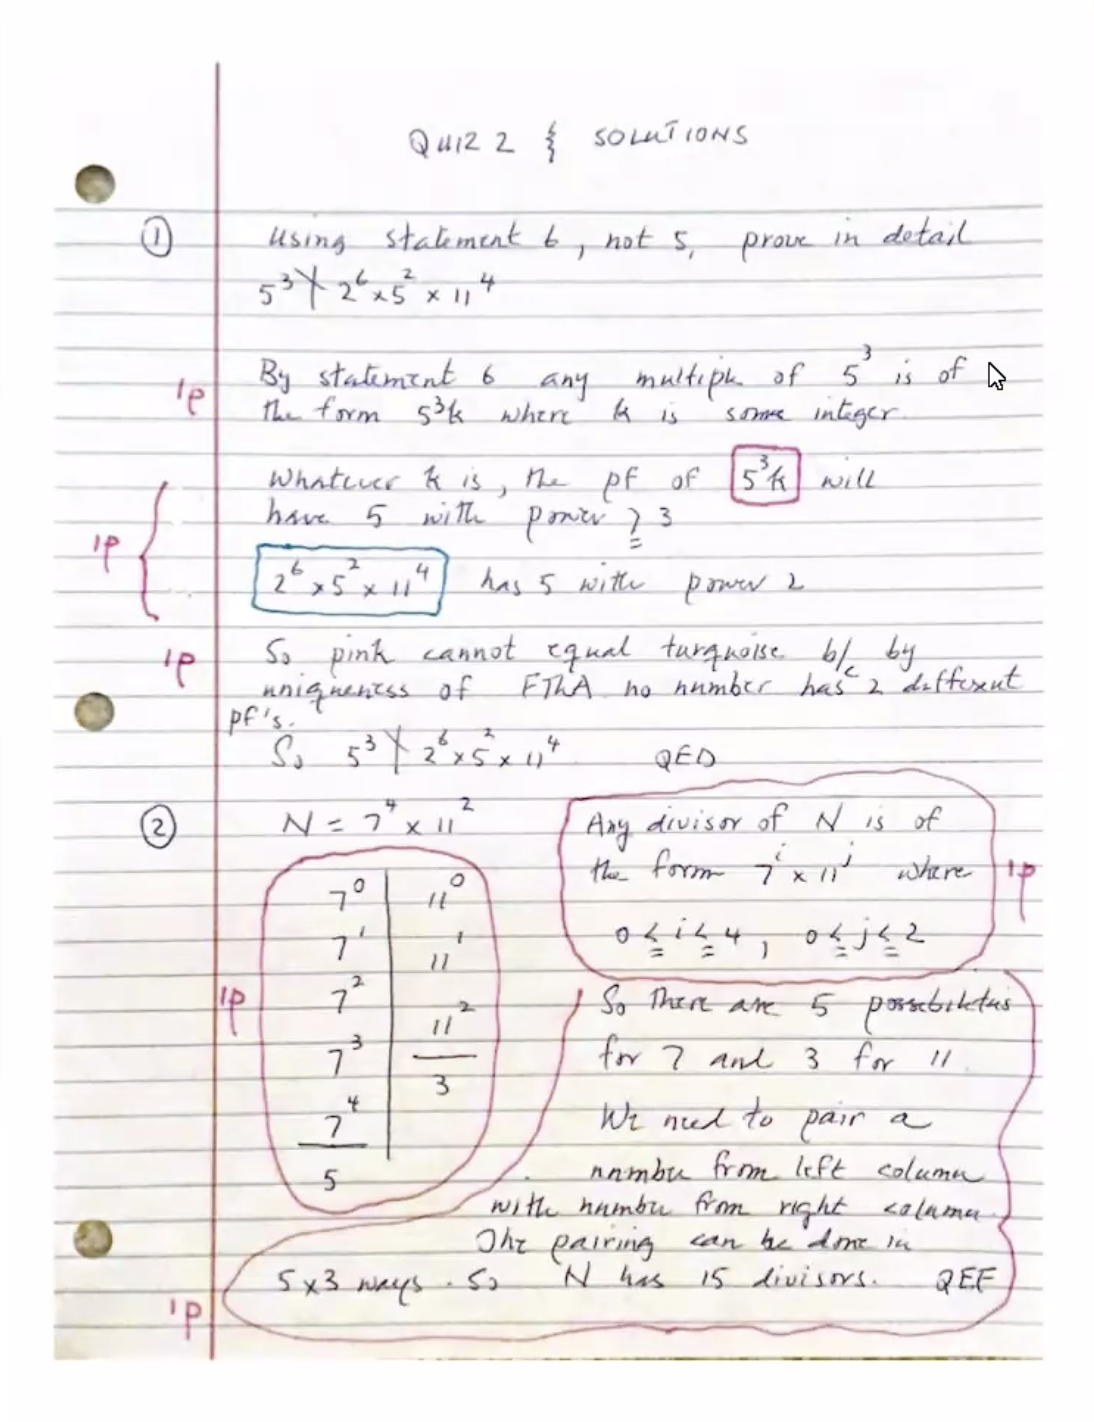 QUIZ 2 & SOLUTIONS
① Using statement 6, not 5, prove in detail
5³ ∤ 2⁶ × 5² × 11⁴
By statement 6 any multiple of 5³ is of
1p
the form 5³k where k is some integer.
Whatever k is, the pf of 5³k will
have 5 with power ≥ 3
1p
2⁶ × 5² × 11⁴ has 5 with power 2
So pink cannot equal turquoise b/c by
1p
uniqueness of FThA no number has 2 different
pf's.
So 5³ ∤ 2⁶ × 5² × 11⁴ QED
② N = 7⁴ × 11²
7⁰ 11⁰
7¹ 11¹
7² 11²
7³ 3
7⁴
5
1p
Any divisor of N is of
the form 7ⁱ × 11ʲ where
1p
0 ≤ i ≤ 4, 0 ≤ j ≤ 2
So there are 5 possibilities
for 7 and 3 for 11
We need to pair a
number from left column
with number from right column.
The pairing can be done in
5 × 3 ways. So N has 15 divisors. QEF
1p